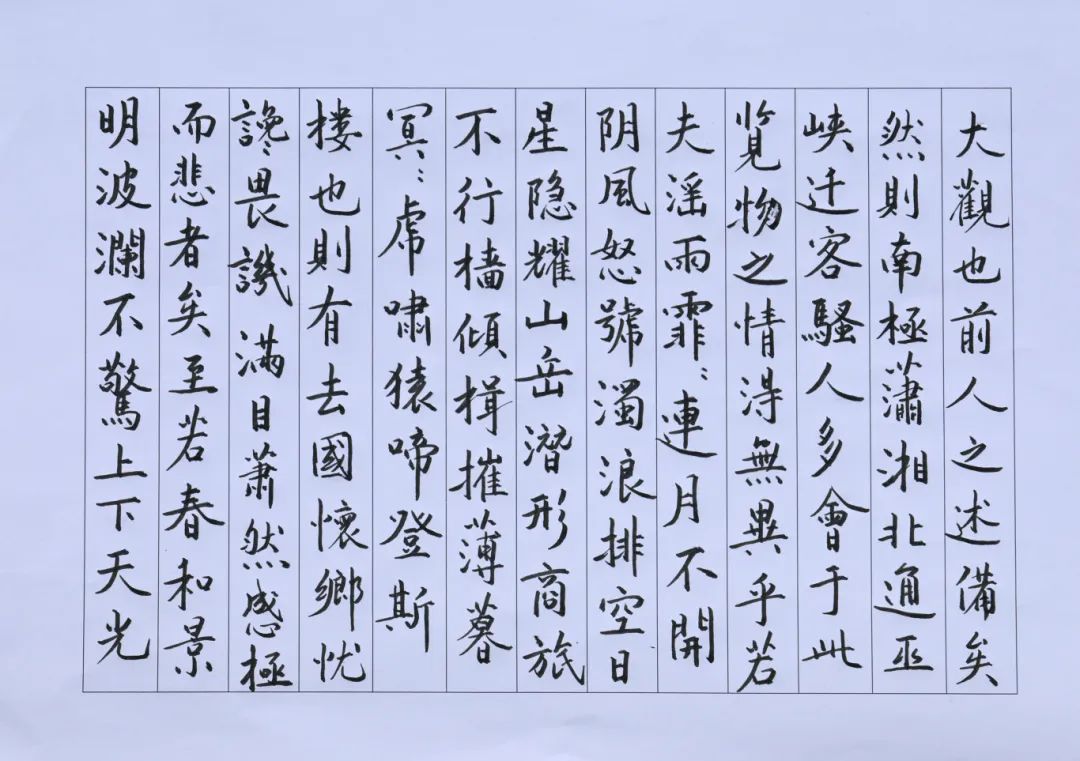 大觀也前人之述備矣
然則南極瀟湘北通巫
峡迁客騷人多會于此
覧物之情得無異乎若
夫淫雨霏〻連月不開
阴風怒號濁浪排空日
星隐耀山岳潜形商旅
不行樯傾楫摧薄暮
冥〻虎嘯猿啼登斯
楼也則有去國懷鄉忧
讒畏譏滿目萧然感極
而悲者矣至若春和景
明波瀾不驚上下天光